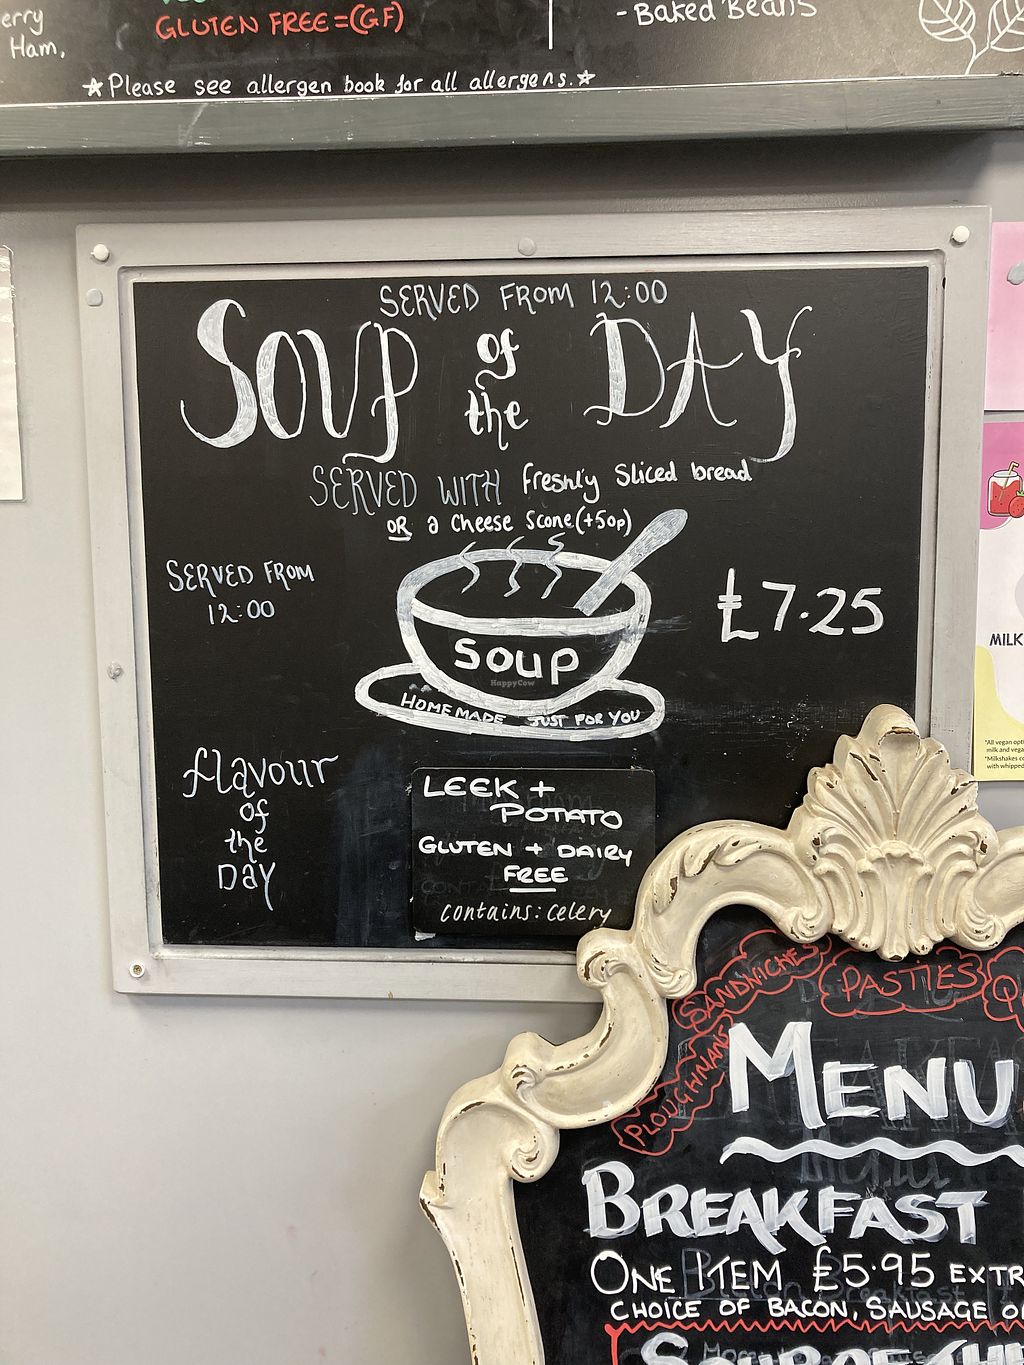 erry
Ham,
GLUTEN FREE=(GF)
-Baked Beans
☆Please see allergen book for all allergens.☆
SERVED FROM 12:00
SOUP of the DAY
SERVED WITH freshly sliced bread
OR a cheese scone(+50p)
SERVED FROM
12:00
£7.25
SOUP
HappyCow
HOMEMADE JUST FOR YOU
flavour
of
the
DAY
LEEK +
POTATO
GLUTEN + DAIRY
FREE
contains: celery
MILK
*All vegan opt
milk and vega
*Milkshakes co
with whipped
SANDWICHES
PASTIES
PLOUGHMANS
MENU
BREAKFAST
ONE ITEM £5.95 EXTR
CHOICE OF BACON, SAUSAGE O